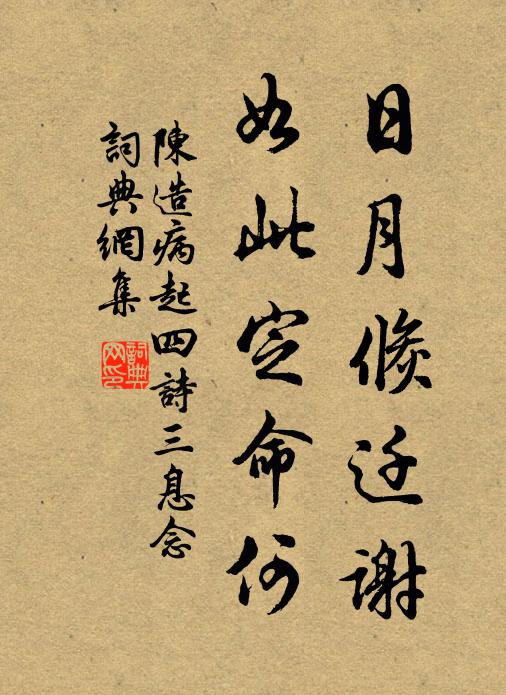 日月倐迁谢
如此定命何
陳造病起四詩三息念
詞典網集
詞典网印